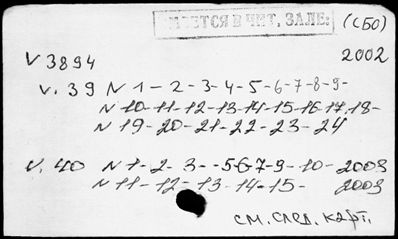 ИМЕЕТСЯ В ЧИТ. ЗАЛЕ: (СБО)
V 3894 2002
v. 39 N 1 - 2 - 3 - 4 - 5 - 6 - 7 - 8 - 9 -
N 10 - 11 - 12 - 13 - 14 - 15 - 16 - 17, 18 -
N 19 - 20 - 21 - 22 - 23 - 24
v. 40 N 1 - 2 - 3 - - 5 - 6 - 7 - 9 - 10 - 2003
N 11 - 12 - 13 - 14 - 15 - 2003
см. след. карт.